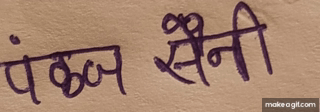 पंकज सैनी
makeagif.com